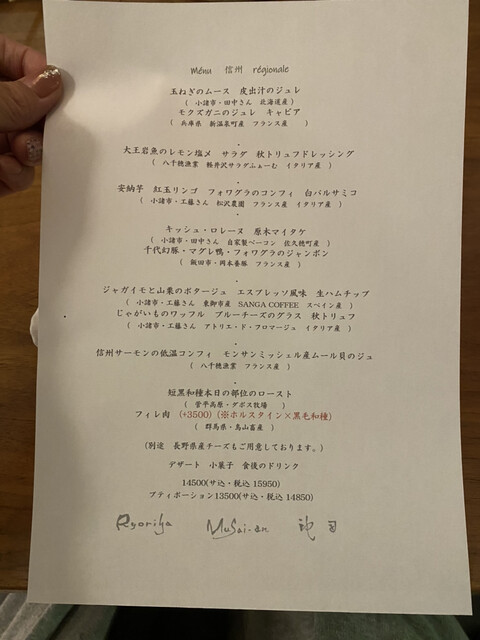 Ménu 信州 régionale
玉ねぎのムース 皮出汁のジュレ
( 小諸市・田中さん 北海道産 )
モクズガニのジュレ キャビア
( 兵庫県 新温泉町産 フランス産 )
大王岩魚のレモン塩〆 サラダ 秋トリュフドレッシング
( 八千穂漁業 軽井沢サラダふぁーむ イタリア産 )
安納芋 紅玉リンゴ フォワグラのコンフィ 白バルサミコ
( 小諸市・工藤さん 松沢農園 フランス産 イタリア産 )
キッシュ・ロレーヌ 原木マイタケ
( 小諸市・田中さん 自家製ベーコン 佐久穂町産 )
千代幻豚・マグレ鴨・フォワグラのジャンボン
( 飯田市・岡本養豚 フランス産 )
ジャガイモと山栗のポタージュ エスプレッソ風味 生ハムチップ
( 小諸市・工藤さん 東御市産 SANGA COFFEE スペイン産 )
じゃがいものワッフル ブルーチーズのグラス 秋トリュフ
( 小諸市・工藤さん アトリエ・ド・フロマージュ イタリア産 )
信州サーモンの低温コンフィ モンサンミッシェル産ムール貝のジュ
( 八千穂漁業 フランス産 )
短黒和種本日の部位のロースト
( 菅平高原・ダボス牧場 )
フィレ肉 (+3500) (※ホルスタイン×黒毛和種)
( 群馬県・鳥山畜産 )
(別途 長野県産チーズもご用意しております。)
デザート 小菓子 食後のドリンク
14500(サ込・税込 15950)
プティポーション13500(サ込・税込 14850)
Ryoriya MuSai-an 池司